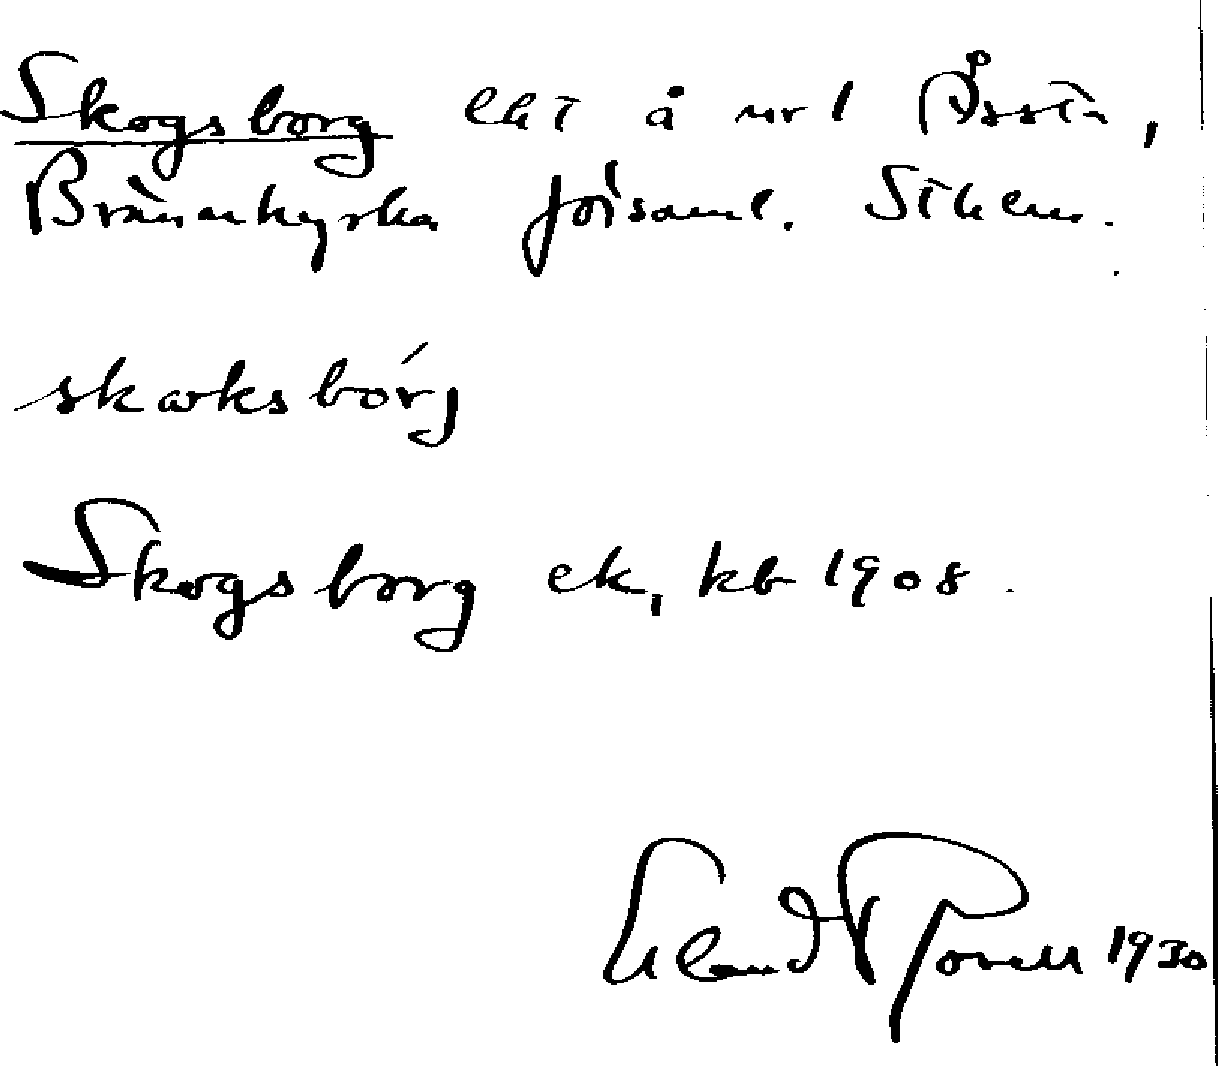 Skogsborg lht å nr 1 Årsta,
Brännkyrka församl. Sthlm.
skωksbórj
Skogsborg ek, kb 1908.
Erland Rosell 1930